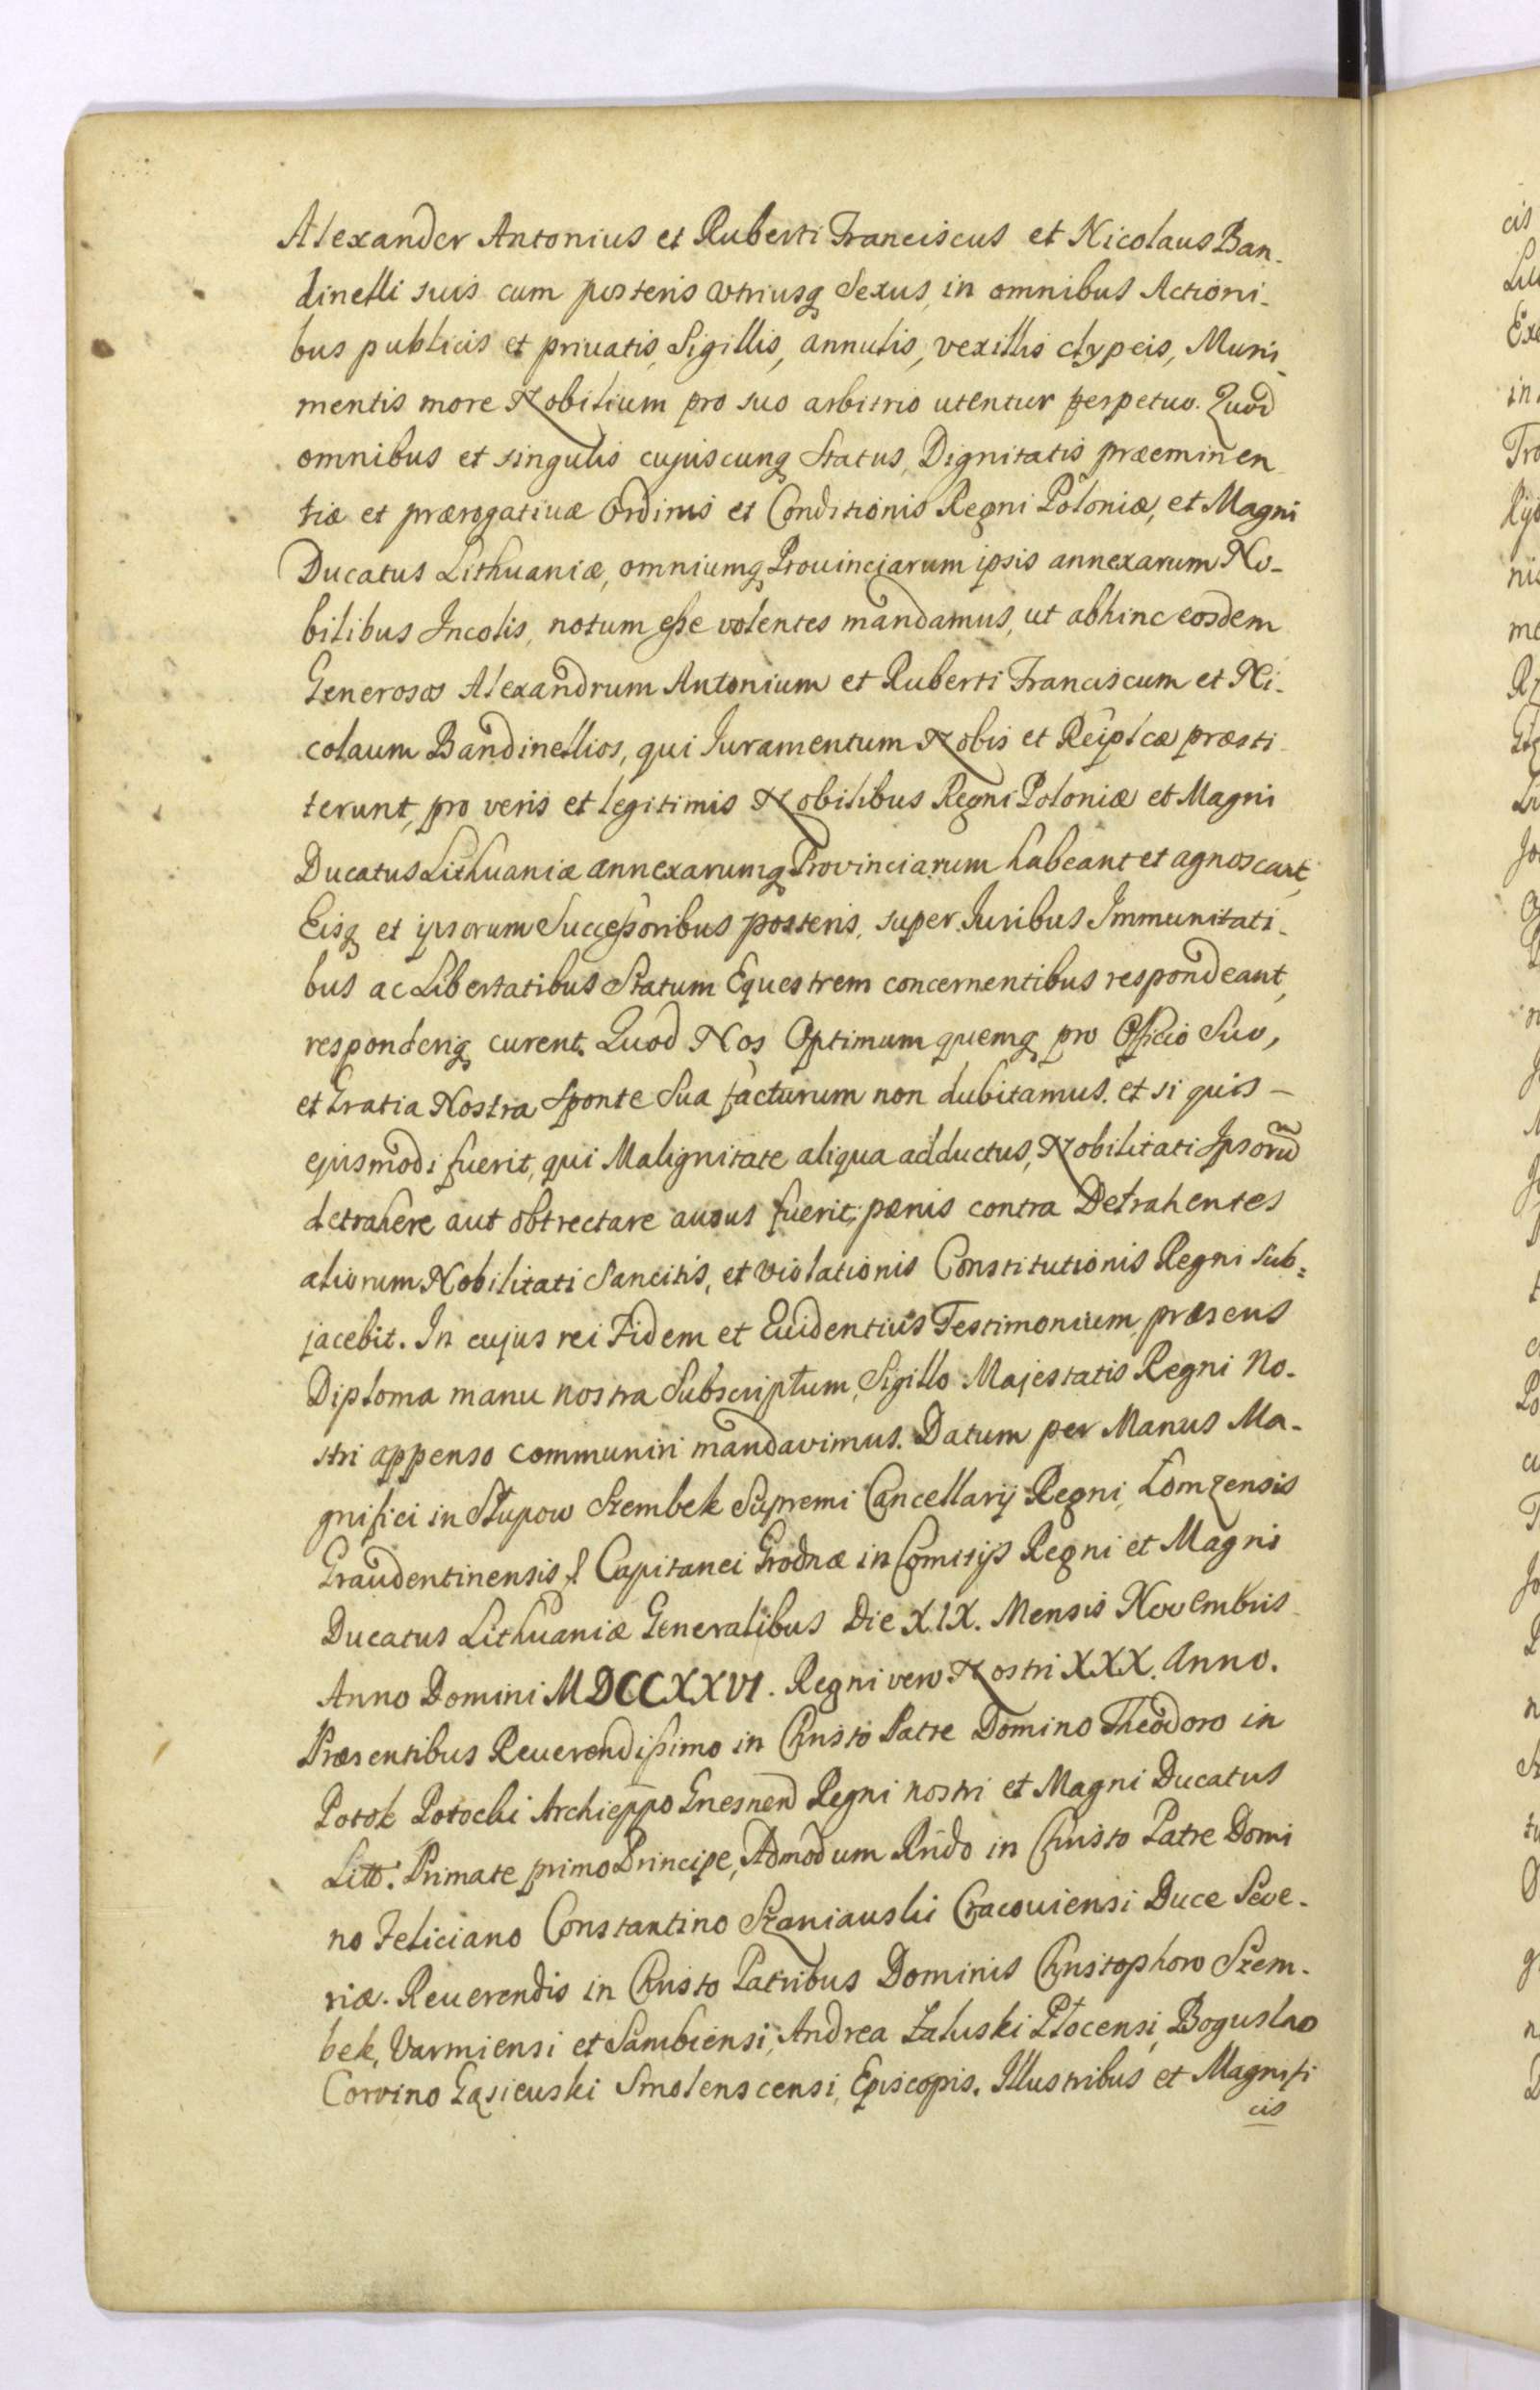 Alexander Antonius et Ruberti Franciscus et Nicolaus Ban-
dinelli suis cum posteris utriusq Sexus, in omnibus Actioni-
bus publicis et priuatis, Sigillis, annulis, vexillis clypeis, Muni-
mentis more Nobilium pro suo arbitrio utentur perpetuo. Quod
omnibus et singulis cujuscunq Status, Dignitatis præeminen
tiæ et prærogatiuæ Ordinis et Conditionis Regni Poloniæ, et Magni
Ducatus Lithuaniæ, omniumq Prouinciarum ipsis annexarum No-
bilibus Incolis, notum esse volentes mandamus, ut abhinc eosdem
Generosos Alexandrum Antonium et Ruberti Franciscum et Ni-
colaum Bandinellios, qui Iuramentum Nobis et Reiplcæ præsti-
terunt, pro veris et legitimis Nobilibus Regni Poloniæ et Magni
Ducatus Lithuaniæ annexarumq Provinciarum habeant et agnoscant,
Eisq et ipsorum Successoribus posteris, super Iuribus Immunitati-
bus ac Libertatibus Statum Equestrem concernentibus respondeant,
responderiq curent. Quod Nos Optimum quemq pro Officio Suo,
et Gratia Nostra Sponte Sua facturum non dubitamus. et si quis -
ejusmodi fuerit, qui Malignitate aliqua adductus, Nobilitati Ipsorũ
detrahere aut obtrectare ausus fuerit; pænis contra Detrahentes
aliorum Nobilitati Sancitis, et violationis Constitutionis Regni Sub=
jacebit. In cujus rei Fidem et Euidentius Testimonium, præsens
Diploma manu nostra Subscriptum, Sigillo Majestatis Regni No-
stri appenso communiri mandavimus. Datum per Manus Ma-
gnifici in Słupow Szembek Supremi Cancellarij Regni, Lomzensis
Graudentinensis & Capitanei Grodnæ in Comitijs Regni et Magni
Ducatus Lithuaniæ Generalibus Die XIX. Mensis Novembris
Anno Domini MDCCXXVI. Regni vero Nostri XXX. Anno.
Præsentibus Reuerendissimo in Christo Patre Domino Theodoro in
Potok Potocki Archieppo Gnesnen Regni nostri et Magni Ducatus
Litt: Primate primo Principe, Admodum Rndo in Christo Patre Domi
no Feliciano Constantino Szaniauski Cracouiensi Duce Seve-
riæ. Reuerendis in Christo Patribus Dominis Christophoro Szem-
bek, Varmiensi et Sambiensi, Andrea Zaluski Płocensi, Boguslao
Corvino Gąsieuski Smolenscensi, Episcopis. Illustribus et Magnifi
cis